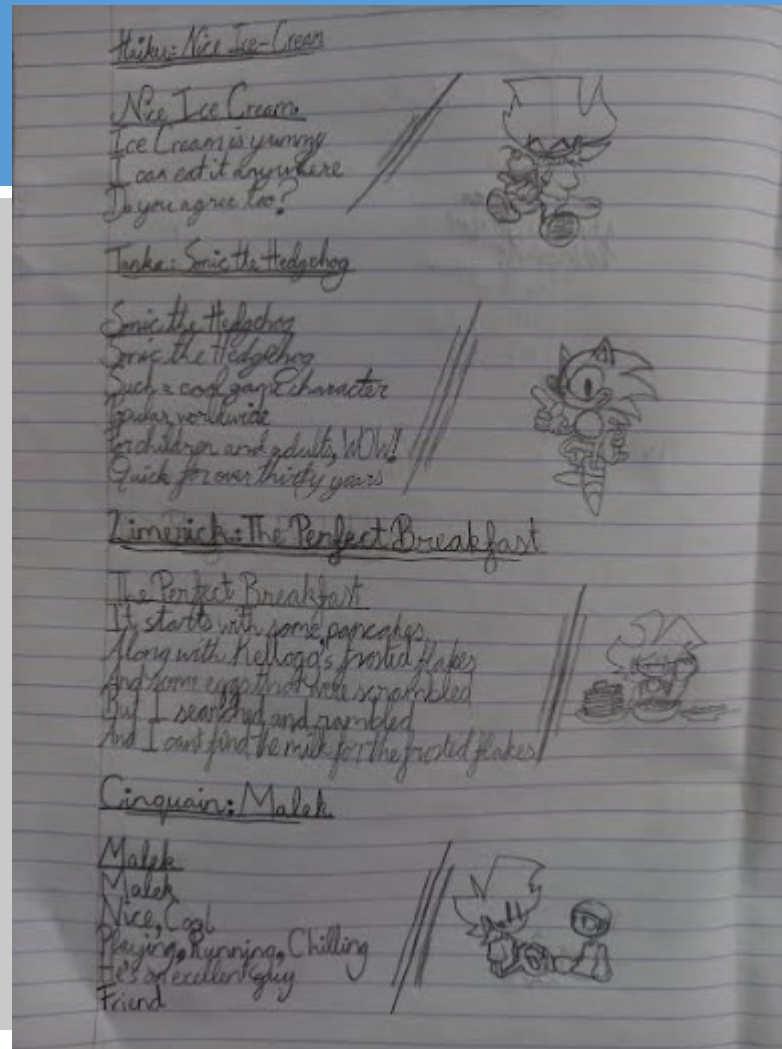 Haiku: Nice Ice-Cream
Nice Ice Cream
Ice Cream is yummy
I can eat it anywhere
Do you agree too?
Tanka: Sonic the Hedgehog
Sonic the Hedgehog
Sonic the Hedgehog
Such a cool game character
worldwide
For children and adults, WOW!
Quick for over thirty years
Limerick: The Perfect Breakfast
The Perfect Breakfast
It starts with some pancakes
Along with Kellogg's frosted flakes
And some eggs that were scrambled
But I searched and rambled
And I can't find the milk for the frosted flakes
Cinquain: Malek
Malek
Malek
Nice, Cool
Playing, Running, Chilling
He's an excellent guy
Friend